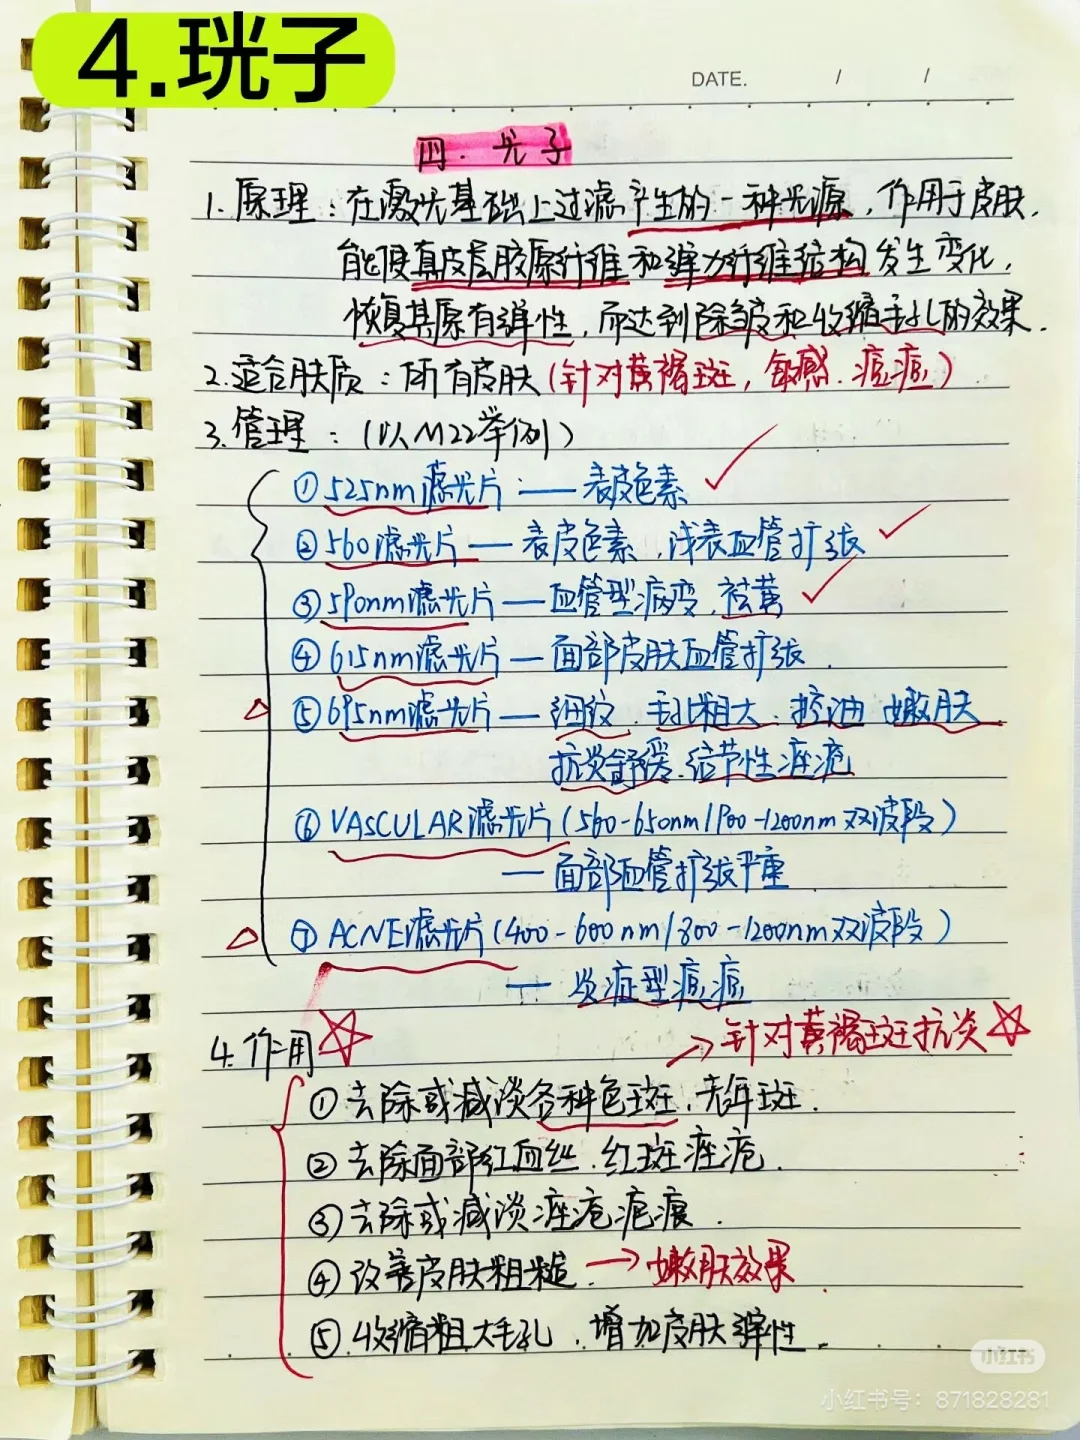 4.珖子
DATE. / /
四. 光子
1. 原理：在激光基础上过滤产生的一种光源，作用于皮肤，
能使真皮层胶原纤维和弹力纤维结构发生变化，
恢复其原有弹性，而达到除皱和收缩毛孔的效果.
2.适合肤质：所有皮肤(针对黄褐斑，敏感.痘痘)
3.管理：(以M22举例)
①525nm滤光片：—表皮色素
②560滤光片—表皮色素，浅表血管扩张
③590nm滤光片—血管型病变.祛黄
④615nm滤光片—面部皮肤血管扩张.
⑤695nm滤光片—细纹.毛孔粗大.控油 嫩肤
抗炎舒缓.结节性痤疮
⑥VASCULAR滤光片(560-650nm/900-1200nm双波段)
—面部血管扩张严重
⑦ACNE滤光片(400-600nm/800-1200nm双波段)
—炎症型痘痘
4.作用 →针对黄褐斑抗炎
①去除或减淡各种色斑.老年斑.
②去除面部红血丝.红斑痤疮.
③去除或减淡痤疮疤痕.
④改善皮肤粗糙.→嫩肤效果
⑤.收缩粗大毛孔.增加皮肤弹性.
小红书
小红书号：871828281